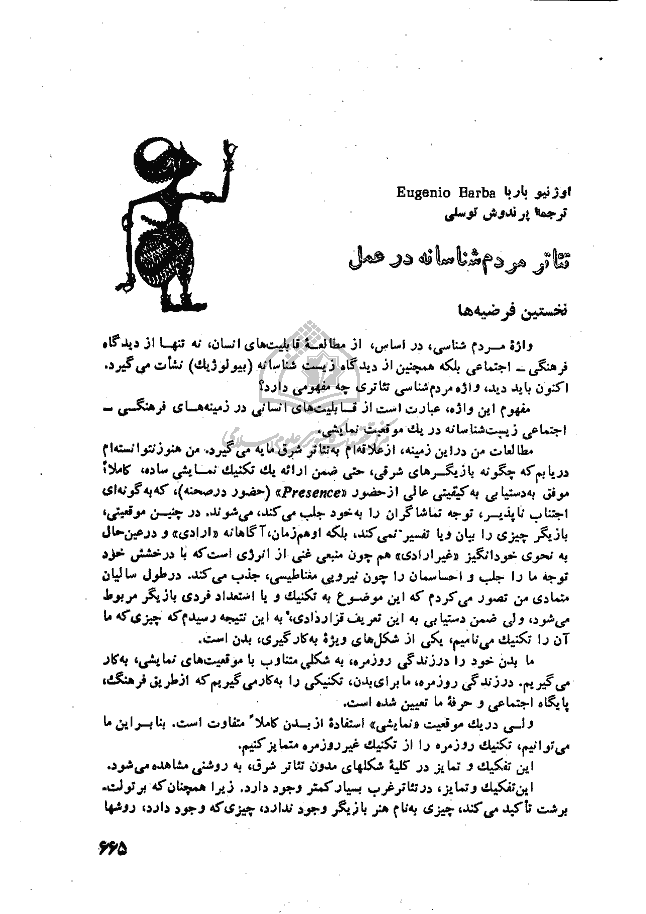 اوژنیو باربا Eugenio Barba
ترجمهٔ پرندوش توسلی
تئاتر مردم‌شناسانه در عمل
نخستین فرضیه‌ها
واژهٔ مردم شناسی، در اساس، از مطالعهٔ قابلیت‌های انسان، نه تنها از دیدگاه
فرهنگی ــ اجتماعی بلکه همچنین از دیدگاه زیست شناسانه (بیولوژیك) نشأت می‌گیرد.
اکنون باید دید، واژه مردم‌شناسی تئاتری چه مفهومی دارد؟
مفهوم این واژه، عبارت است از قابلیت‌های انسانی در زمینه‌های فرهنگی ــ
اجتماعی زیست‌شناسانه در یك موقعیت نمایشی.
مطالعات من در این زمینه، از علاقه‌ام به‌تئاتر شرق مایه می‌گیرد. من هنوز نتوانسته‌ام
دریابم که چگونه بازیگرهای شرقی، حتی ضمن ارائه یك تکنیك نمایشی ساده، کاملاً
موفق به‌دستیابی به‌کیفیتی عالی از حضور «Presence» (حضور درصحنه)، که به‌گونه‌ای
اجتناب ناپذیر، توجه تماشاگران را به‌خود جلب می‌کند، می‌شوند. در چنین موقعیتی،
بازیگر چیزی را بیان ویا تفسیر نمی‌کند، بلکه اوهم‌زمان، آگاهانه «ارادی» و درعین‌حال
به نحوی خودانگیز «غیرارادی» هم چون منبعی غنی از انرژی است که با درخشش خود
توجه ما را جلب و احساسمان را چون نیرویی مغناطیسی، جذب می‌کند. درطول سالیان
متمادی من تصور می‌کردم که این موضوع به تکنیك و یا استعداد فردی بازیگر مربوط
می‌شود، ولی ضمن دستیابی به این تعریف قراردادی، به این نتیجه رسیدم که چیزی‌که ما
آن را تکنیك می‌نامیم، یکی از شکل‌های ویژهٔ به‌کارگیری، بدن است.
ما بدن خود را درزندگی روزمره، به شکلی متناوب با موقعیت‌های نمایشی، به‌کار
می‌گیریم. درزندگی روزمره، ما برای‌بدن، تکنیکی را به‌کار می‌گیریم که ازطریق فرهنگ،
پایگاه اجتماعی و حرفهٔ ما تعیین شده است.
ولی دریك موقعیت «نمایشی» استفادهٔ از بدن کاملاً متفاوت است. بنابراین ما
می‌توانیم، تکنیك روزمره را از تکنیك غیرروزمره متمایز کنیم.
این تفکیك و تمایز در کلیهٔ شکلهای مدون تئاتر شرق، به روشنی مشاهده می‌شود.
این‌تفکیك وتمایز، درتئاترغرب بسیار کمتر وجود دارد. زیرا همچنان‌که برتولت
برشت تأکید می‌کند، چیزی به‌نام هنر بازیگر وجود ندارد، چیزی‌که وجود دارد، روشها
۶۶۵